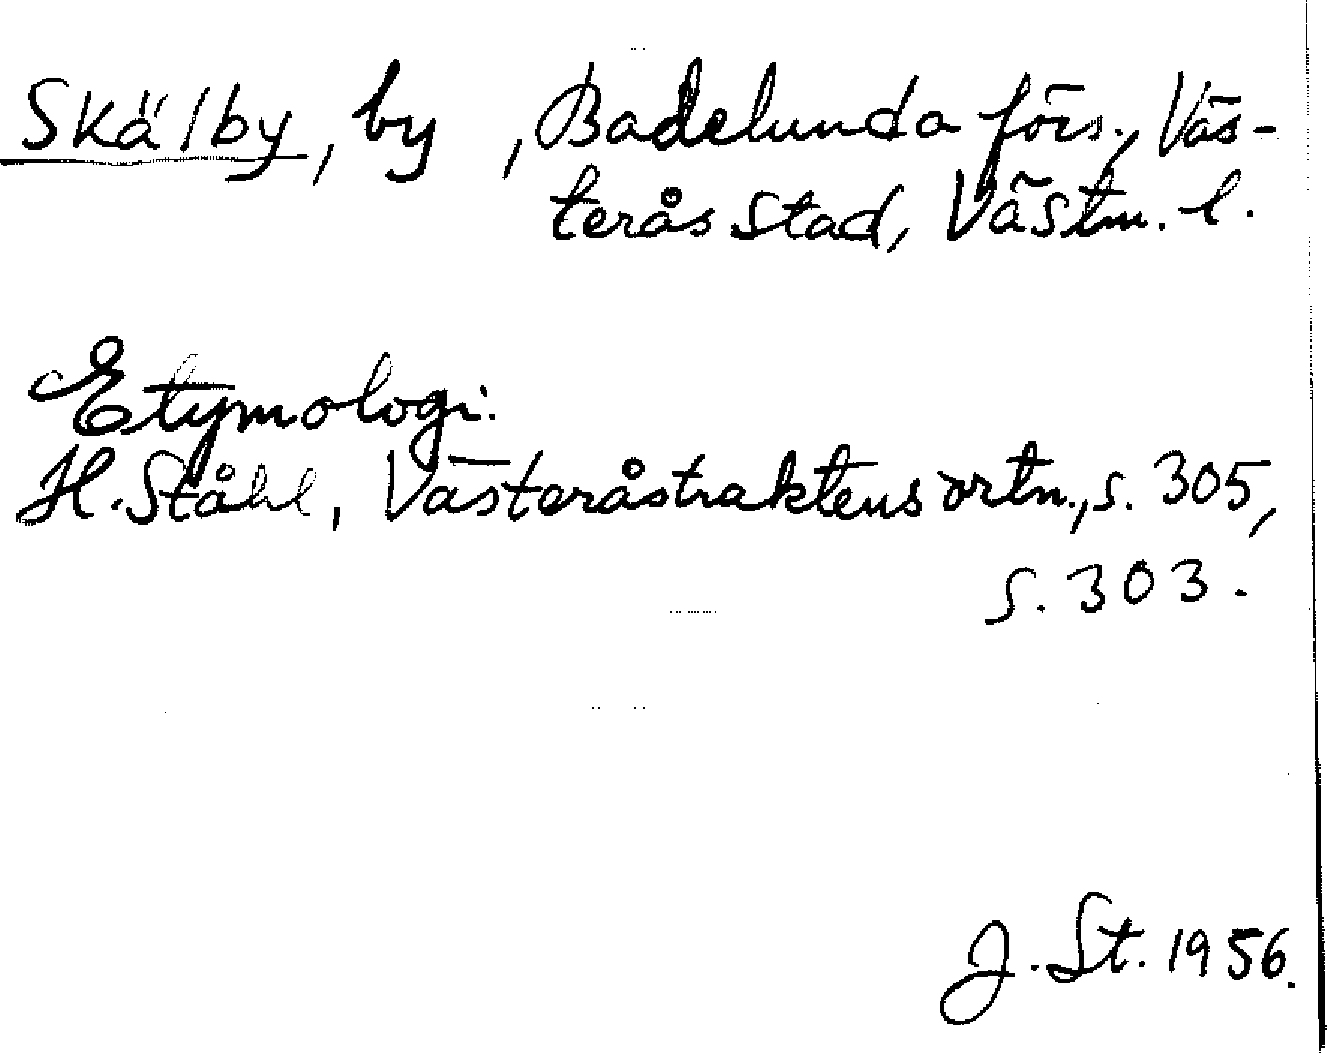 Skälby, by, Badelunda förs., Väs-
terås stad, Västm. l.
Etymologi:
H. Ståhl, Västeråstraktens ortn., s. 305,
s. 303.
J. St. 1956.